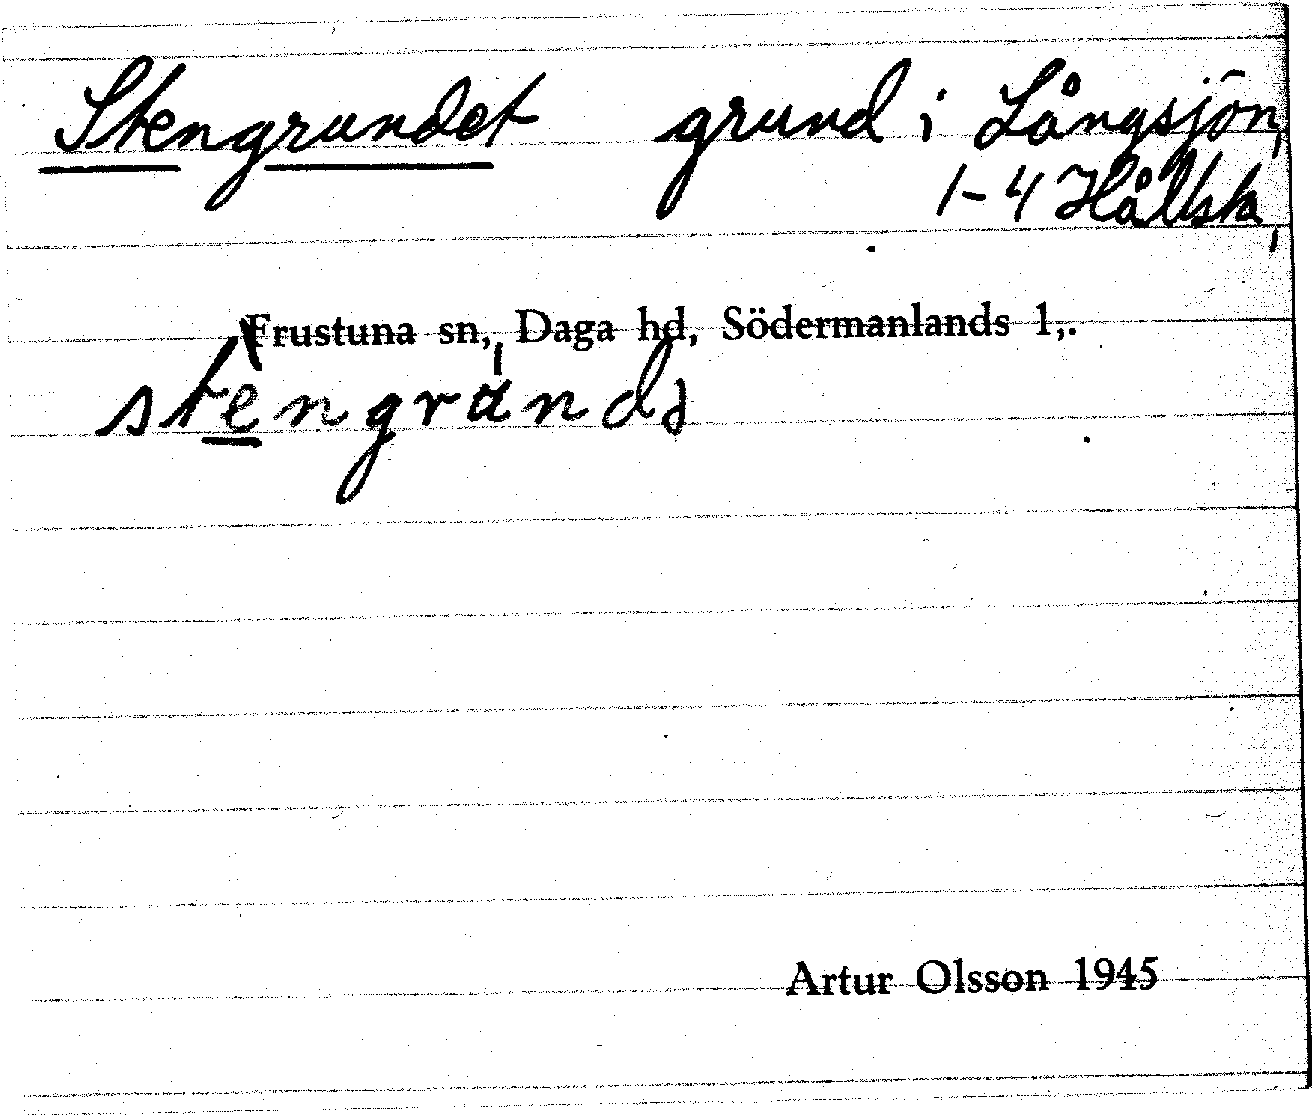 Stengrundet grund i Långsjön,
1-4 Hållsta,
Frustuna sn, Daga hd, Södermanlands l,.
Artur Olsson 1945